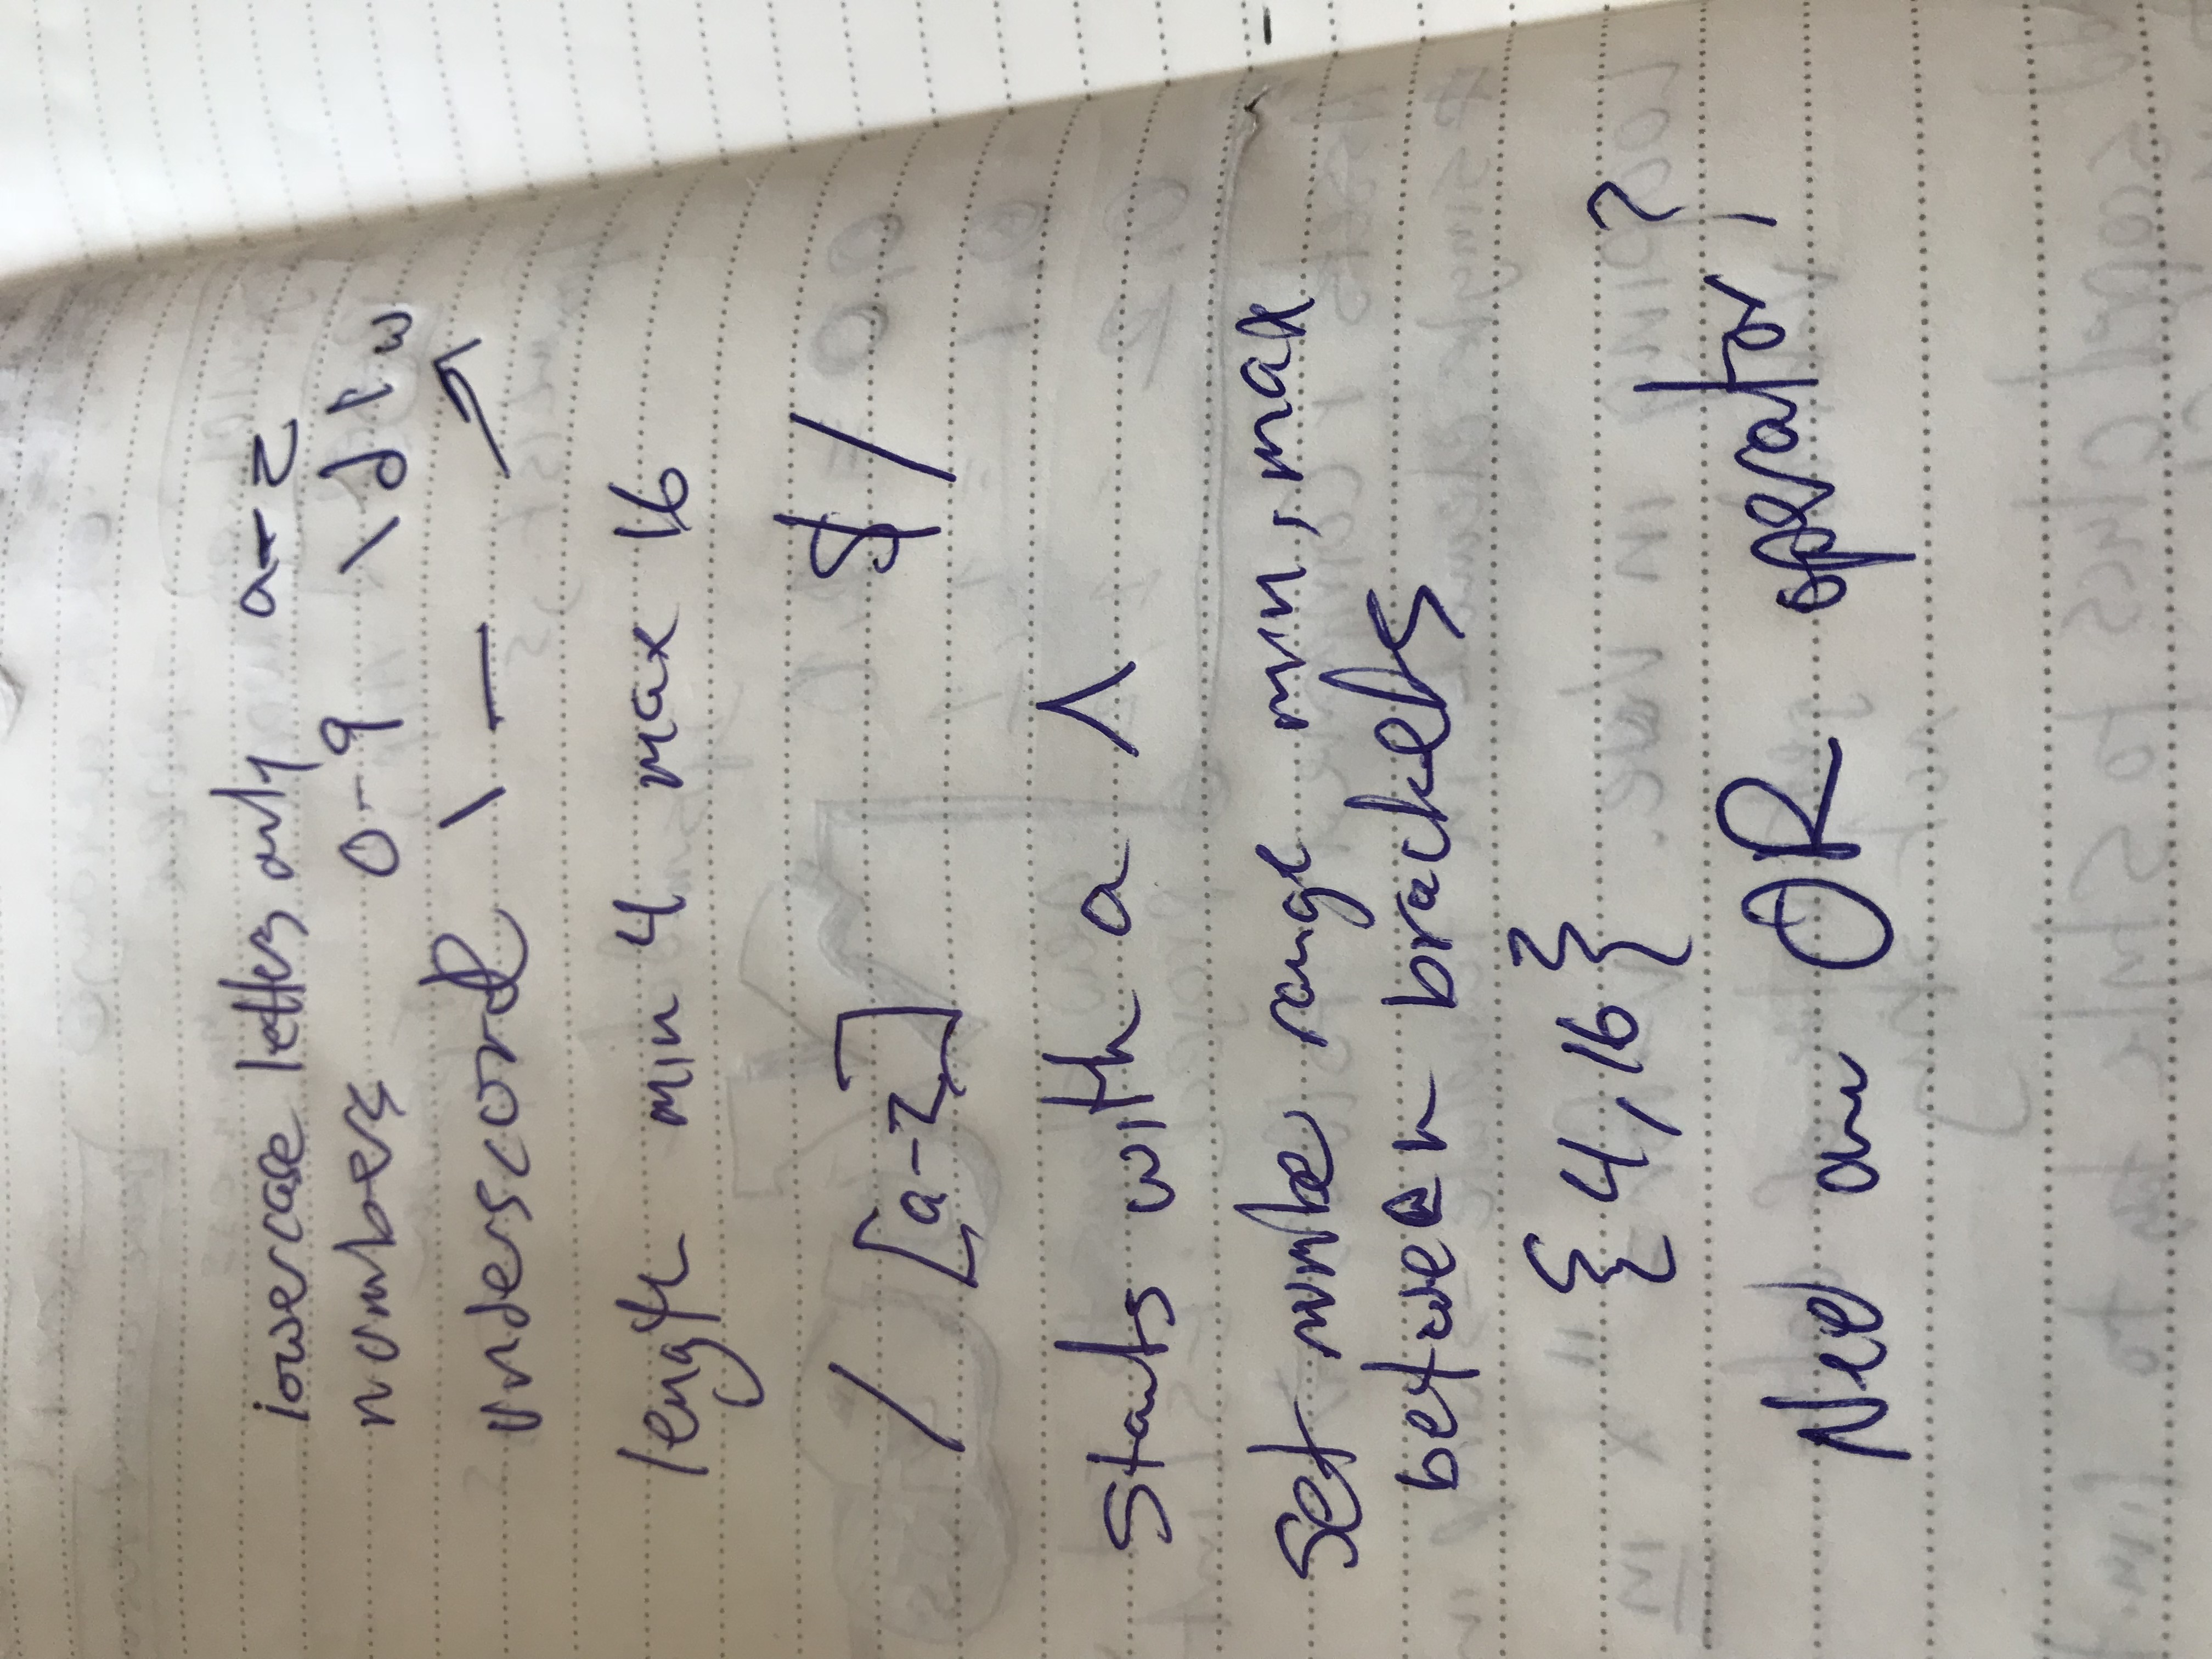 lowercase letters only a-z
numbers 0-9 \d \w
underscore \_ ↗
length min 4 max 16
/ [a-z] $/
starts with a ^
Set number range min, max
between brackets
{4,16}
Need an OR operator?